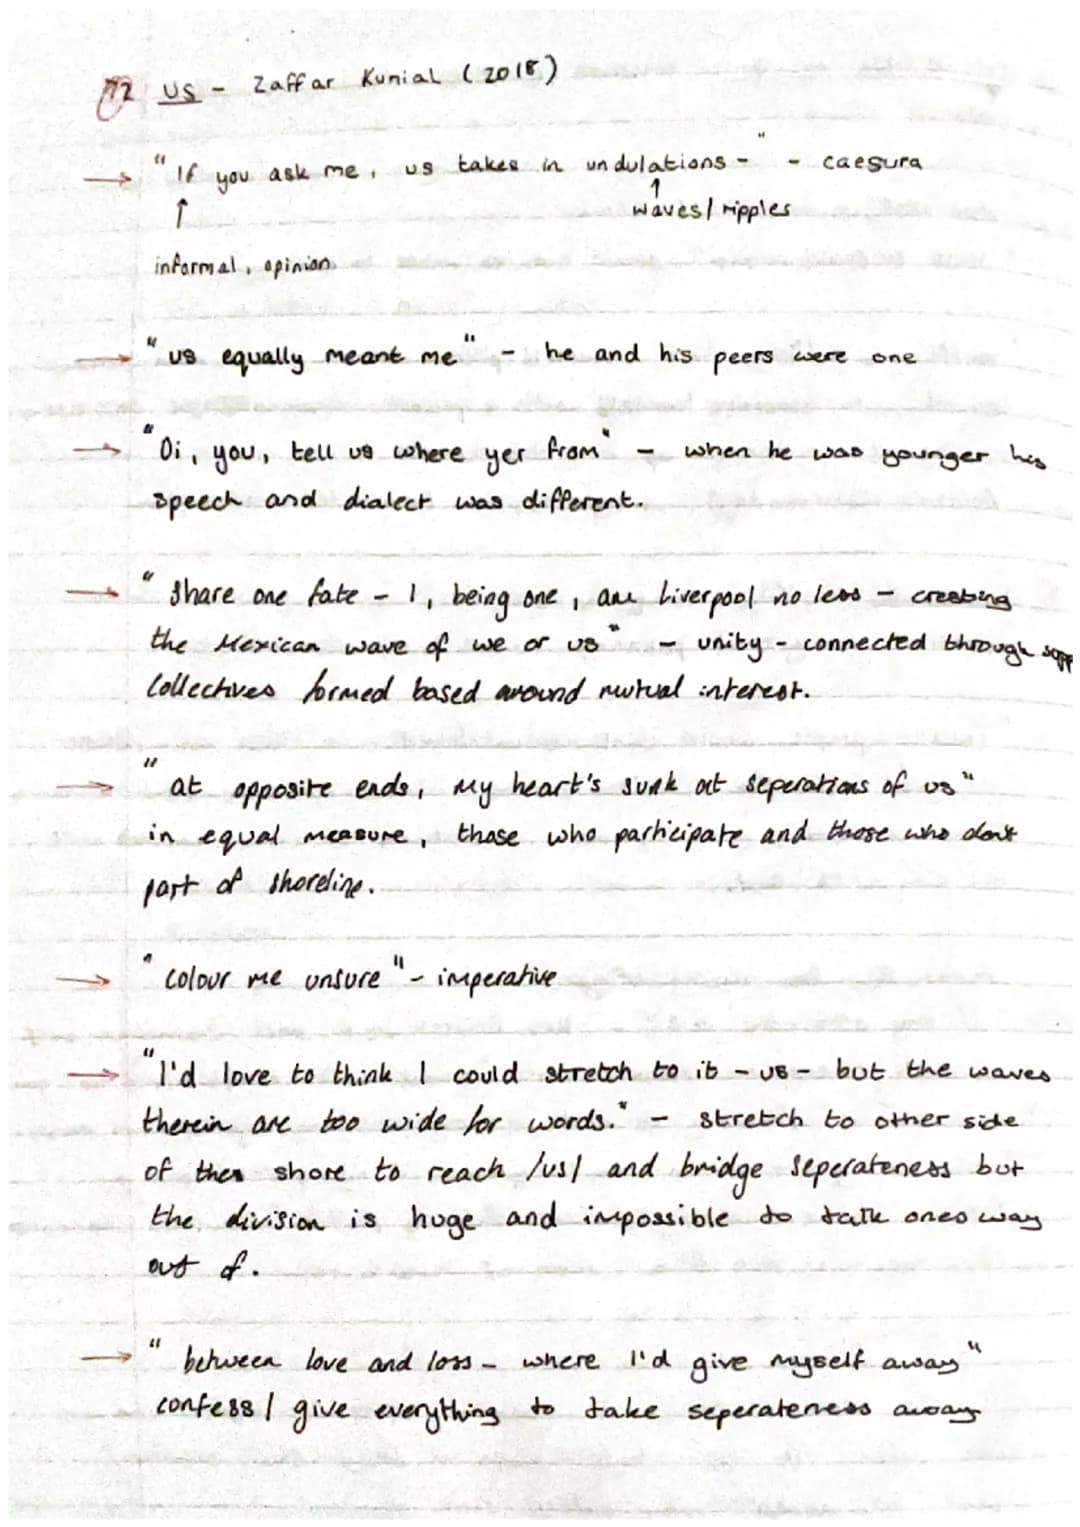 72 US - Zaffar Kunial (2018)
→ "If you ask me, us takes in undulations -" - caesura
↑ ↑
waves/ ripples
informal, opinion
→ "us equally meant me" - he and his peers were one
→ "Oi, you, tell us where yer from" - when he was younger his
speech and dialect was different.
→ "share one fate - I, being one, am Liverpool no less - cresting
the Mexican wave of we or us" - unity - connected through supp
Collectives formed based around mutual interest.
→ "at opposite ends, my heart's sunk at seperations of us"
in equal measure, those who participate and those who don't
part of shoreline.
→ "colour me unsure" - imperative
→ "I'd love to think I could stretch to it - us - but the waves
therein are too wide for words." - stretch to other side
of shore to reach /us/ and bridge seperateness but
the division is huge and impossible to talk ones way
out of.
→ "between love and loss - where I'd give myself away"
confess / give everything to take seperateness away